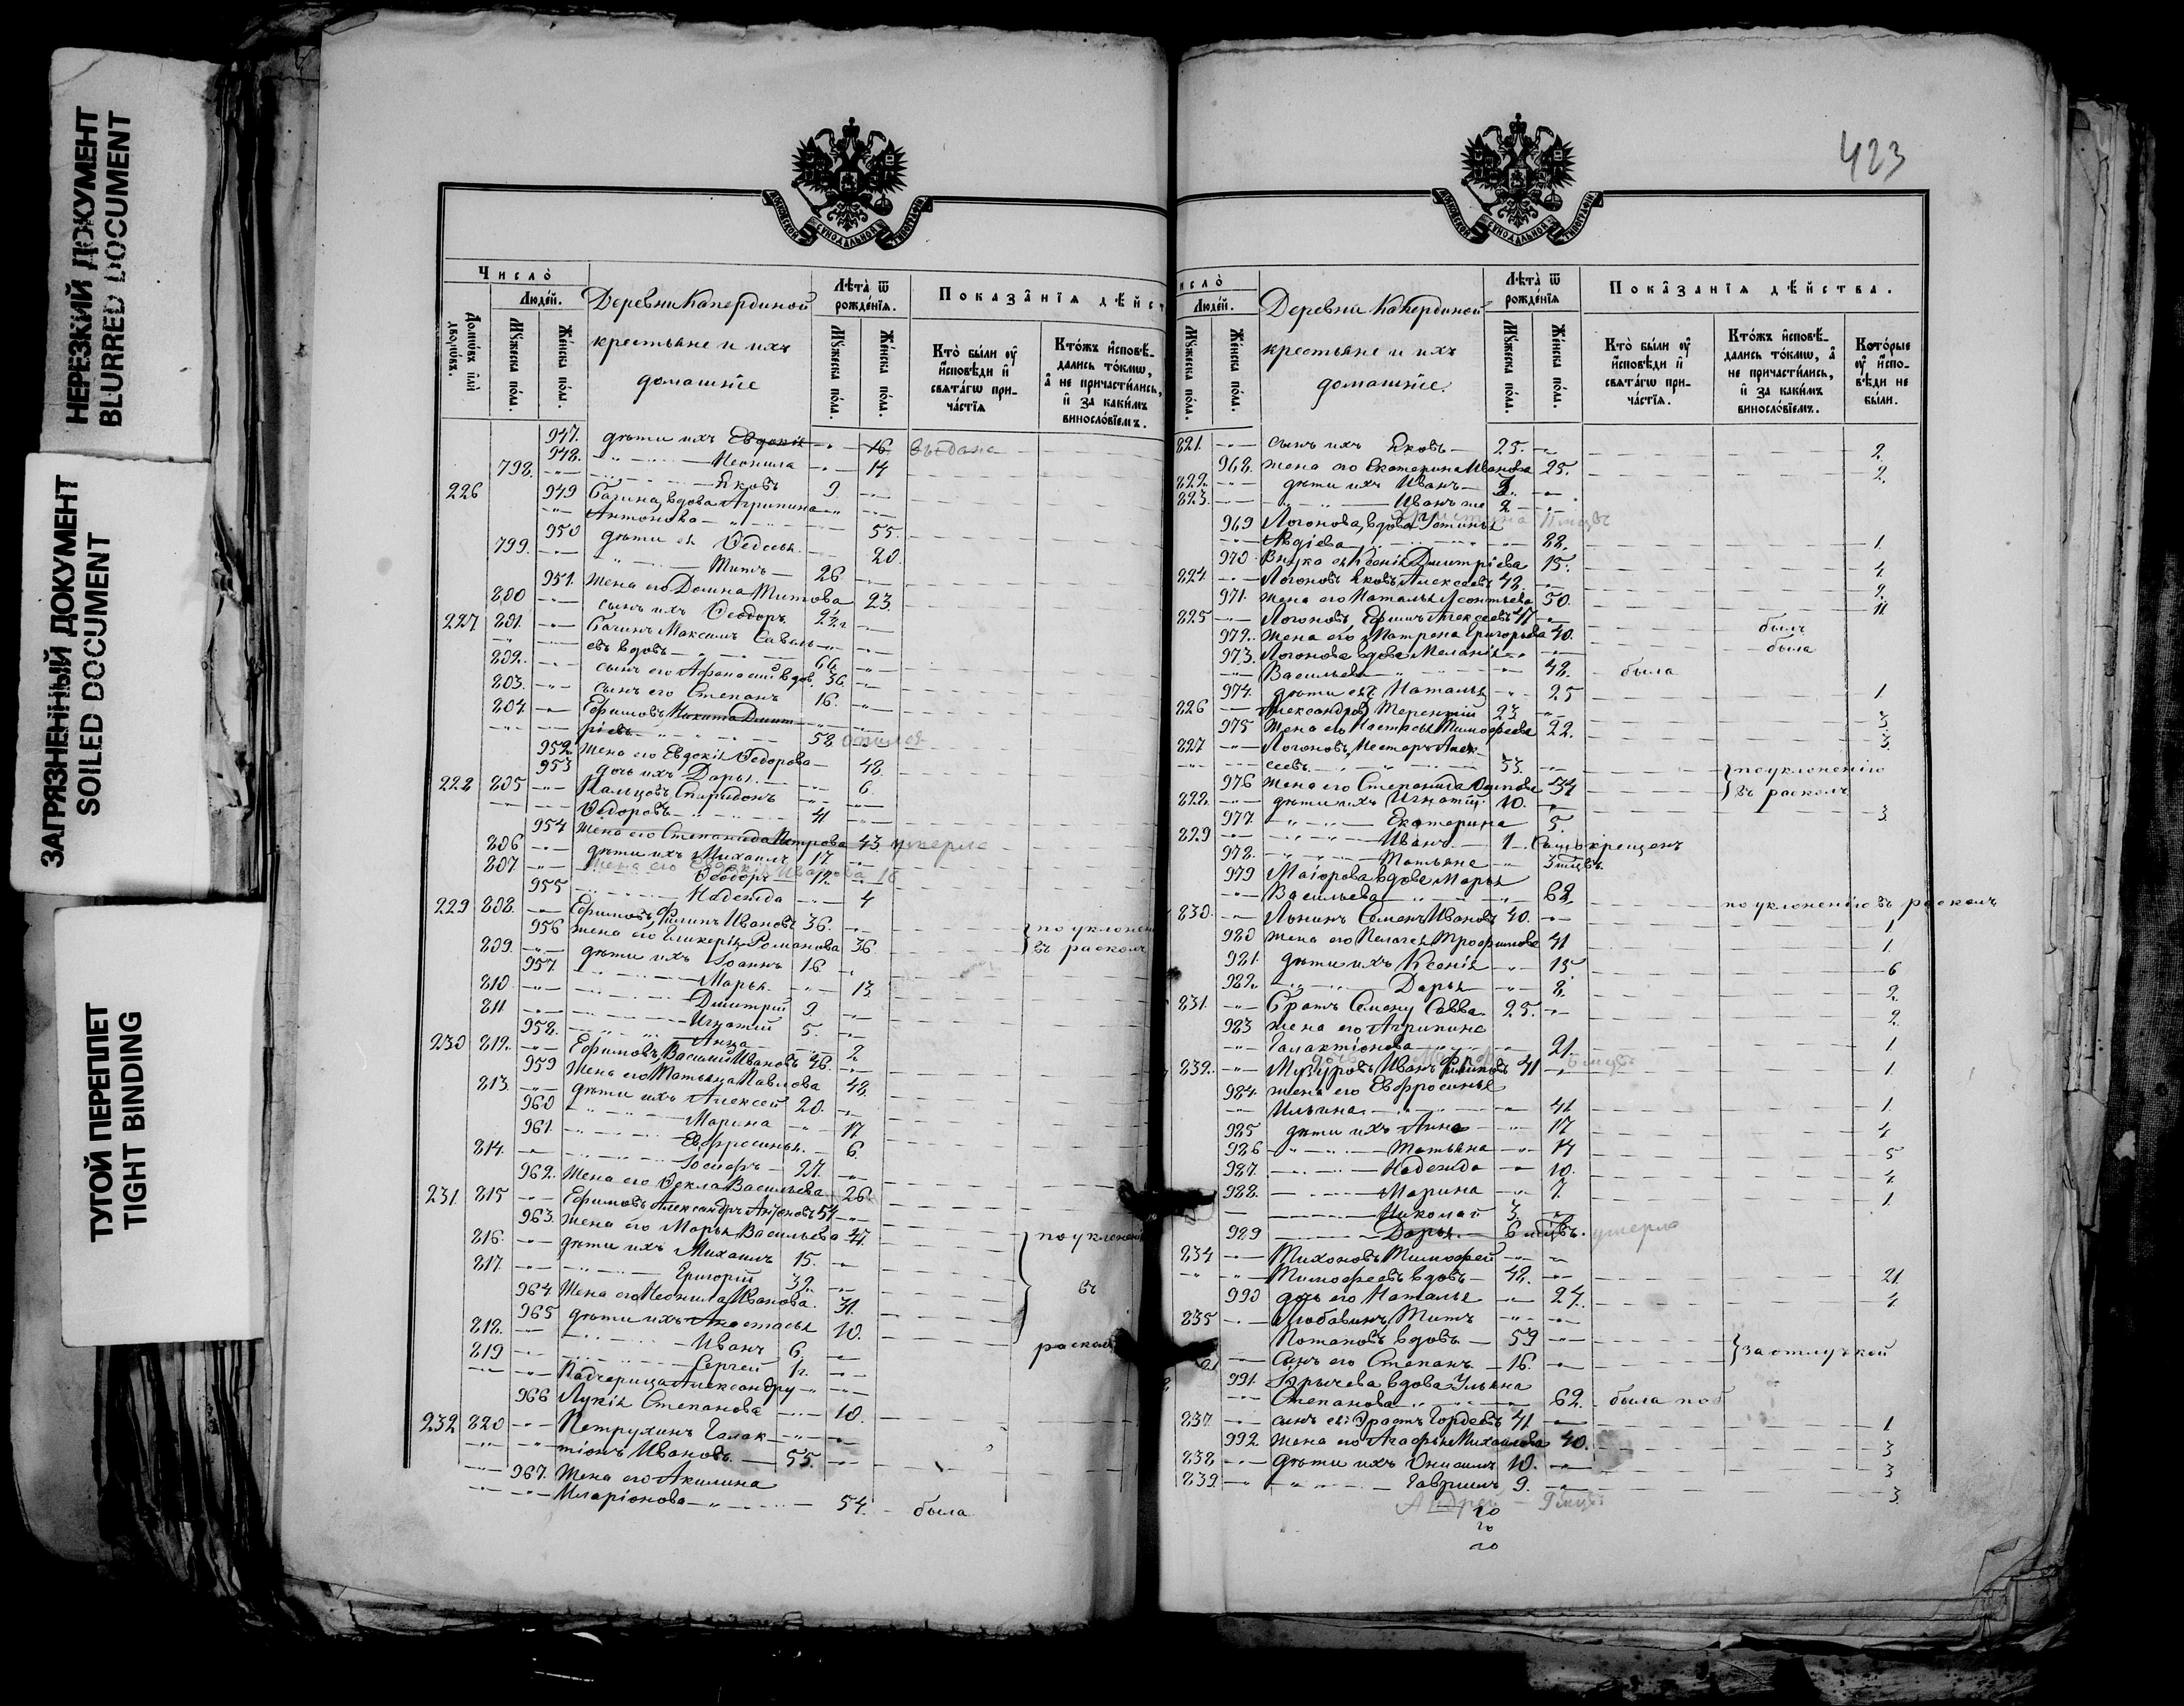 НЕРЕЗКИЙ ДОКУМЕНТ
BLURRED DOCUMENT
ЗАГРЯЗНЕННЫЙ ДОКУМЕНТ
SOILED DOCUMENT
ТУГОЙ ПЕРЕПЛЕТ
TIGHT BINDING
МОСКОВСКОЙ СУНОДАЛЬНОЙ ТИПОГРАФІИ
Число
Людей.
Домовъ или дворовъ.
Мужеска пола.
Женска пола.
Деревни Капердиной
крестьяне и ихъ
домашніе
Лѣта ѿ рожденія.
Мужеска пола.
Женска пола.
Показанія дѣйст
Кто были оу исповѣди и святагω причастія
Ктожъ исповѣдались токмω, а не причастились, и за какимъ винословіемъ.
947. дѣти ихъ Евдокія 16 выдана
948. Неонила 14
798. Яковъ 9
226 949 вдова Агрипина
Антонова 55.
950 дѣти ея Ѳедосья 20.
799. Титъ 26
951. жена его Домна Титова 23.
800 сынъ ихъ Ѳеодоръ
227 801. Максимъ Савель
евъ вдовъ 66.
802. сынъ его Афанасій вдов. 36.
803. сынъ его Степанъ 16.
804 Ефимовъ Никита Дмит
ріевъ 58
952. жена его Евдокія Ѳедорова 48.
953 дочь ихъ Дарья 6.
228 805 Кальцовъ Спиридонъ
Ѳедоровъ 41
954 жена его Степанида Петрова 43. умерла
806 дѣти ихъ Михаилъ 17
жена его Евдокія Иванова 18
807. Ѳеодоръ 12.
955 Надежда 4
229 808. Ефимовъ Филипъ Ивановъ 36.
956 жена его Гликерія Романова 36. по уклонені
809. дѣти ихъ Іоаннъ 16. въ расколъ
957. Марья 13
810. Дмитрій 9
811. Игнатій 5.
958. Анна 2
230 812. Ефимовъ Василій Ивановъ 46.
959 жена его Татьяна Павлова 48.
813. дѣти ихъ Алексей 20.
960 Марина 17
961. Евфросинья 6.
814. Іосифъ 27.
962. жена его Ѳекла Васильева 26
231. 815 Ефимовъ Александръ Антоновъ 54
963. жена его Марья Васильева 47. по уклонені
816. дѣти ихъ Михаилъ 15.
817. Григорій 32.
964 жена его Неонила Иванова 31. въ
965 дѣти ихъ Анастасья 10.
818. Иванъ 6. расколъ
819 Сергей
Падчерица Александру
966 Лукія Степанова 10.
232 820 Петрухинъ Галак
тіонъ Ивановъ 55.
967. жена его Акилина
Иларіонова 54. была
423
МОСКОВСКОЙ СУНОДАЛЬНОЙ ТИПОГРАФІИ
исло
Людей.
Мужеска пола.
Женска пола.
Деревни Капердиной
крестьяне и ихъ
домашніе.
Лѣта ѿ рожденія
Мужеска пола.
Женска пола.
Показанія дѣйства.
Кто были оу исповѣди и святагω причастія.
Ктожъ исповѣдались токмω, а не причастились, и за какимъ винословіемъ.
Которые оу исповѣди не были.
821. сынъ ихъ Яковъ 25. 2.
968. жена его Екатерина Иванова 25. 2.
822. дѣти ихъ Иванъ
823. Иванъ же 2
969 Логонова вдова Устинья
Авдіева 88. 1.
970. Внука ея Ксенія Дмитріева 15. 4.
824. Логоновъ Яковъ Алексеевъ 48. 2.
971. жена его Наталья Леонтьева 50. 11.
825 Логоновъ Ефимъ Алексеевъ 41 былъ
972. жена его Матрена Григорьева 40. была
973. Логонова вдова Меланія
Васильева 48. была
974. дѣти ея: Наталья 25 1
826 Александръ Терентій 23 3.
975 жена его Настасья Тимофеева 22. 3.
827 Логоновъ Несторъ Алек
сеевъ 33. по уклоненію
976 жена его Степанида Осипова 34 въ расколъ
828. дѣти ихъ Игнатій 10.
977. Екатерина 5. 3
829 Иванъ 1
978. Татьяна 3 мѣсц.
979 Маіорова вдова Марья
Васильева 62. по уклоненію въ расколъ
830. Льнинъ Семенъ Ивановъ 40. 1
980 жена его Пелагея Трофимова 41 1
981. дѣти ихъ Ксенія 15. 6
982. Дарья 8. 2.
831. Братъ Семену Савва 25. 2.
983 жена его Агрипина
Галактіонова 21. 1
832. Иванъ 41 1
984. жена его Евфросинья
Ильина 41 1.
985 дѣти ихъ Анна 17 4
986 Татьяна 14 5
987. Надежда 10. 4
988. Марина 7. 1.
Николай 3.
989 Дарья 6 мѣсцевъ. умерла
834 Тихоновъ Тимофей
Тимофеевъ вдовъ 48. 21.
990 дочь его Наталья 24. 4.
835 Любавинъ Титъ
Потаповъ вдовъ 59 за отлучкой
Сынъ его Степанъ 16.
991. вдова Ульяна
Степанова 62. была
837. сынъ ея: Эрастъ Гордеевъ 41. 1
992. жена его Агафья Михайлова 40. 3
838 дѣти ихъ Онисимъ 10. 3
839. Гавріилъ 9. 3
Андрей